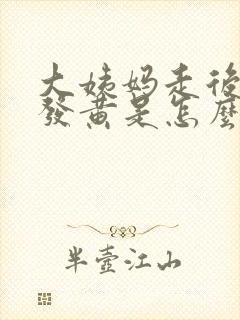 大姨妈走後
發黃是怎麼
半壺江山